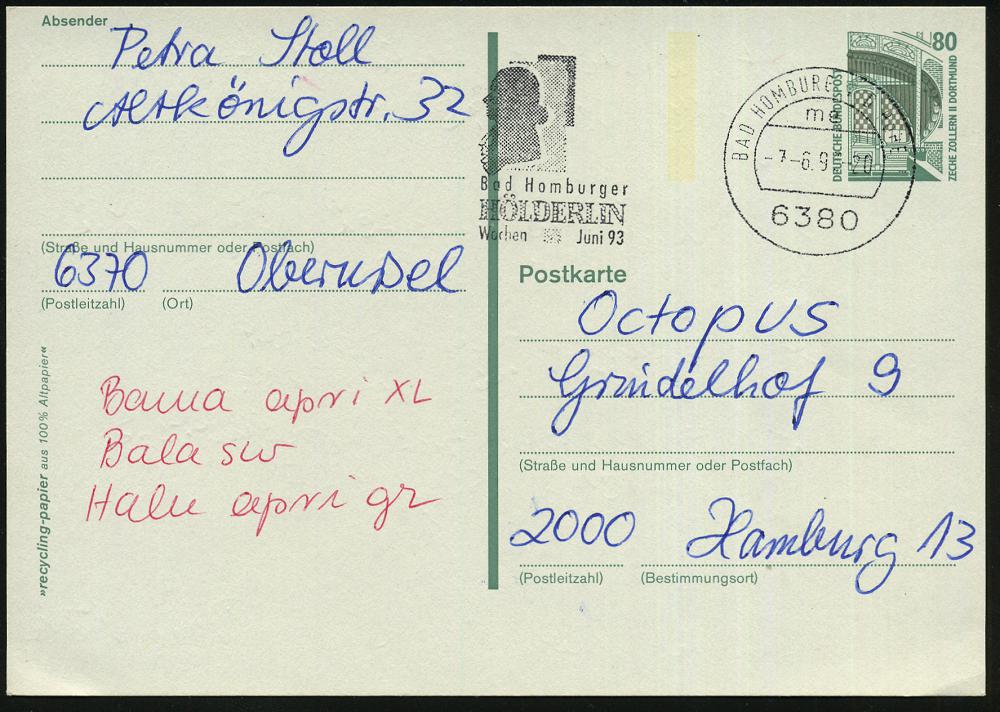 Absender
Petra Stoll
Altkönigstr. 32
(Straße und Hausnummer oder Postfach)
6370 Oberursel
(Postleitzahl) (Ort)
»recycling-papier aus 100% Altpapier«
Bama apri XL
Bala sw
Halu apri gr
Bad Homburger
HÖLDERLIN
Wochen Juni 93
BAD HOMBURG
me
-7-6.9 -20
6380
80
DEUTSCHE BUNDESPOST
ZECHE ZOLLERN II DORTMUND
Postkarte
Octopus
Grindelhof 9
(Straße und Hausnummer oder Postfach)
2000 Hamburg 13
(Postleitzahl) (Bestimmungsort)